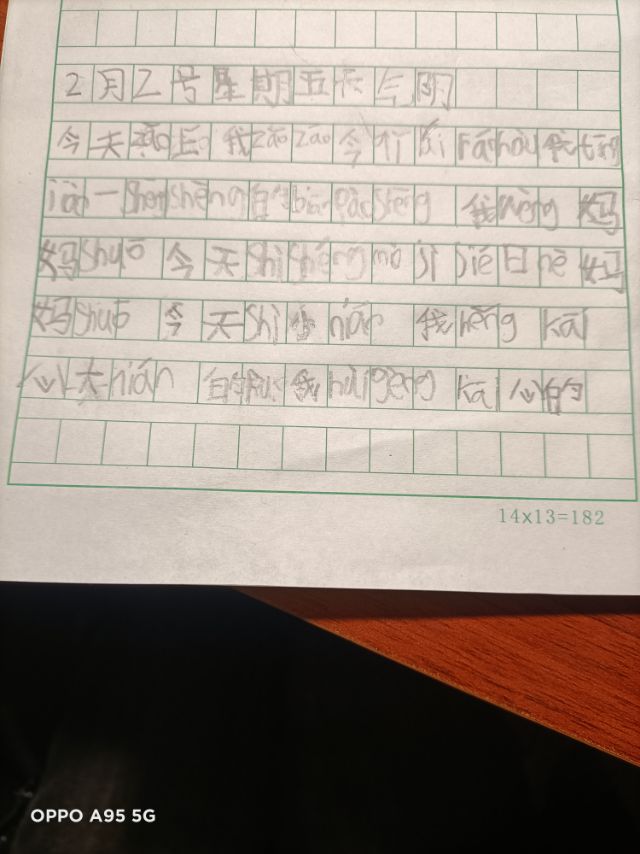 2月乙号星期五天气阴
今天早上我zǎo zǎo 今 qǐ lái rán hòu 我 tīng
jiàn 一 shēng shēng 的 biān pào shēng 我 wèng 妈
妈 shuō 今天 shì shéng mo jì jié 日 nè 妈
妈 shuō 今天 shì 小 nián 我 hěng kāi
心 大 nián 的 我 huì gèng kāi 心的
14x13=182
OPPO A95 5G